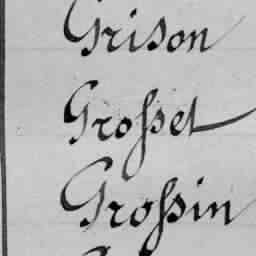 Grison
Grosset
Grossin